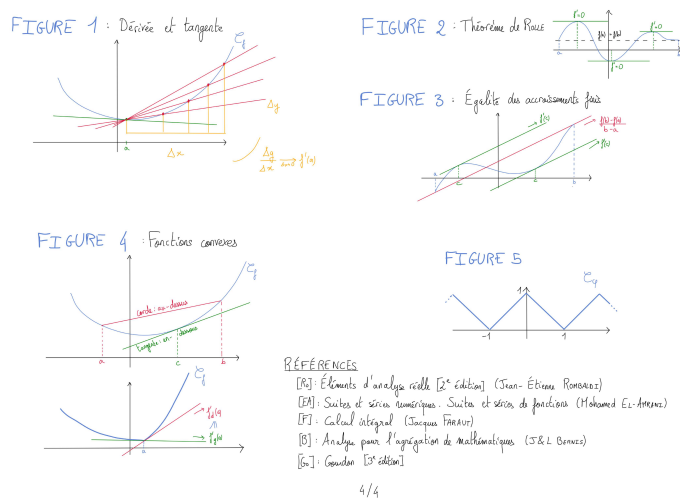 FIGURE 1 : Dérivée et tangente
𝒞f
Δy
a
Δx
Δy/Δx → f'(a)
FIGURE 2 : Théorème de ROLLE
f'=0
f'=0
f(a)=f(b)
a
b
f'=0
FIGURE 3 : Égalité des accroissements finis
f'(c)
f(b)-f(a)/b-a
a
c
b
FIGURE 4 : Fonctions convexes
𝒞f
corde : au-dessus
tangente : en-dessous
a
c
b
𝒞f
f'd(a)
f'g(a)
a
FIGURE 5
1
-1
1
RÉFÉRENCES
[Ro] : Éléments d'analyse réelle [2e édition] (Jean-Étienne ROMBALDI)
[EA] : Suites et séries numériques. Suites et séries de fonctions (Mohamed EL-AMRANI)
[F] : Calcul intégral (Jacques FARAUT)
[B] : Analyse pour l'agrégation de mathématiques (J&L BERNIS)
[Go] : Gourdon [3e édition]
4/4